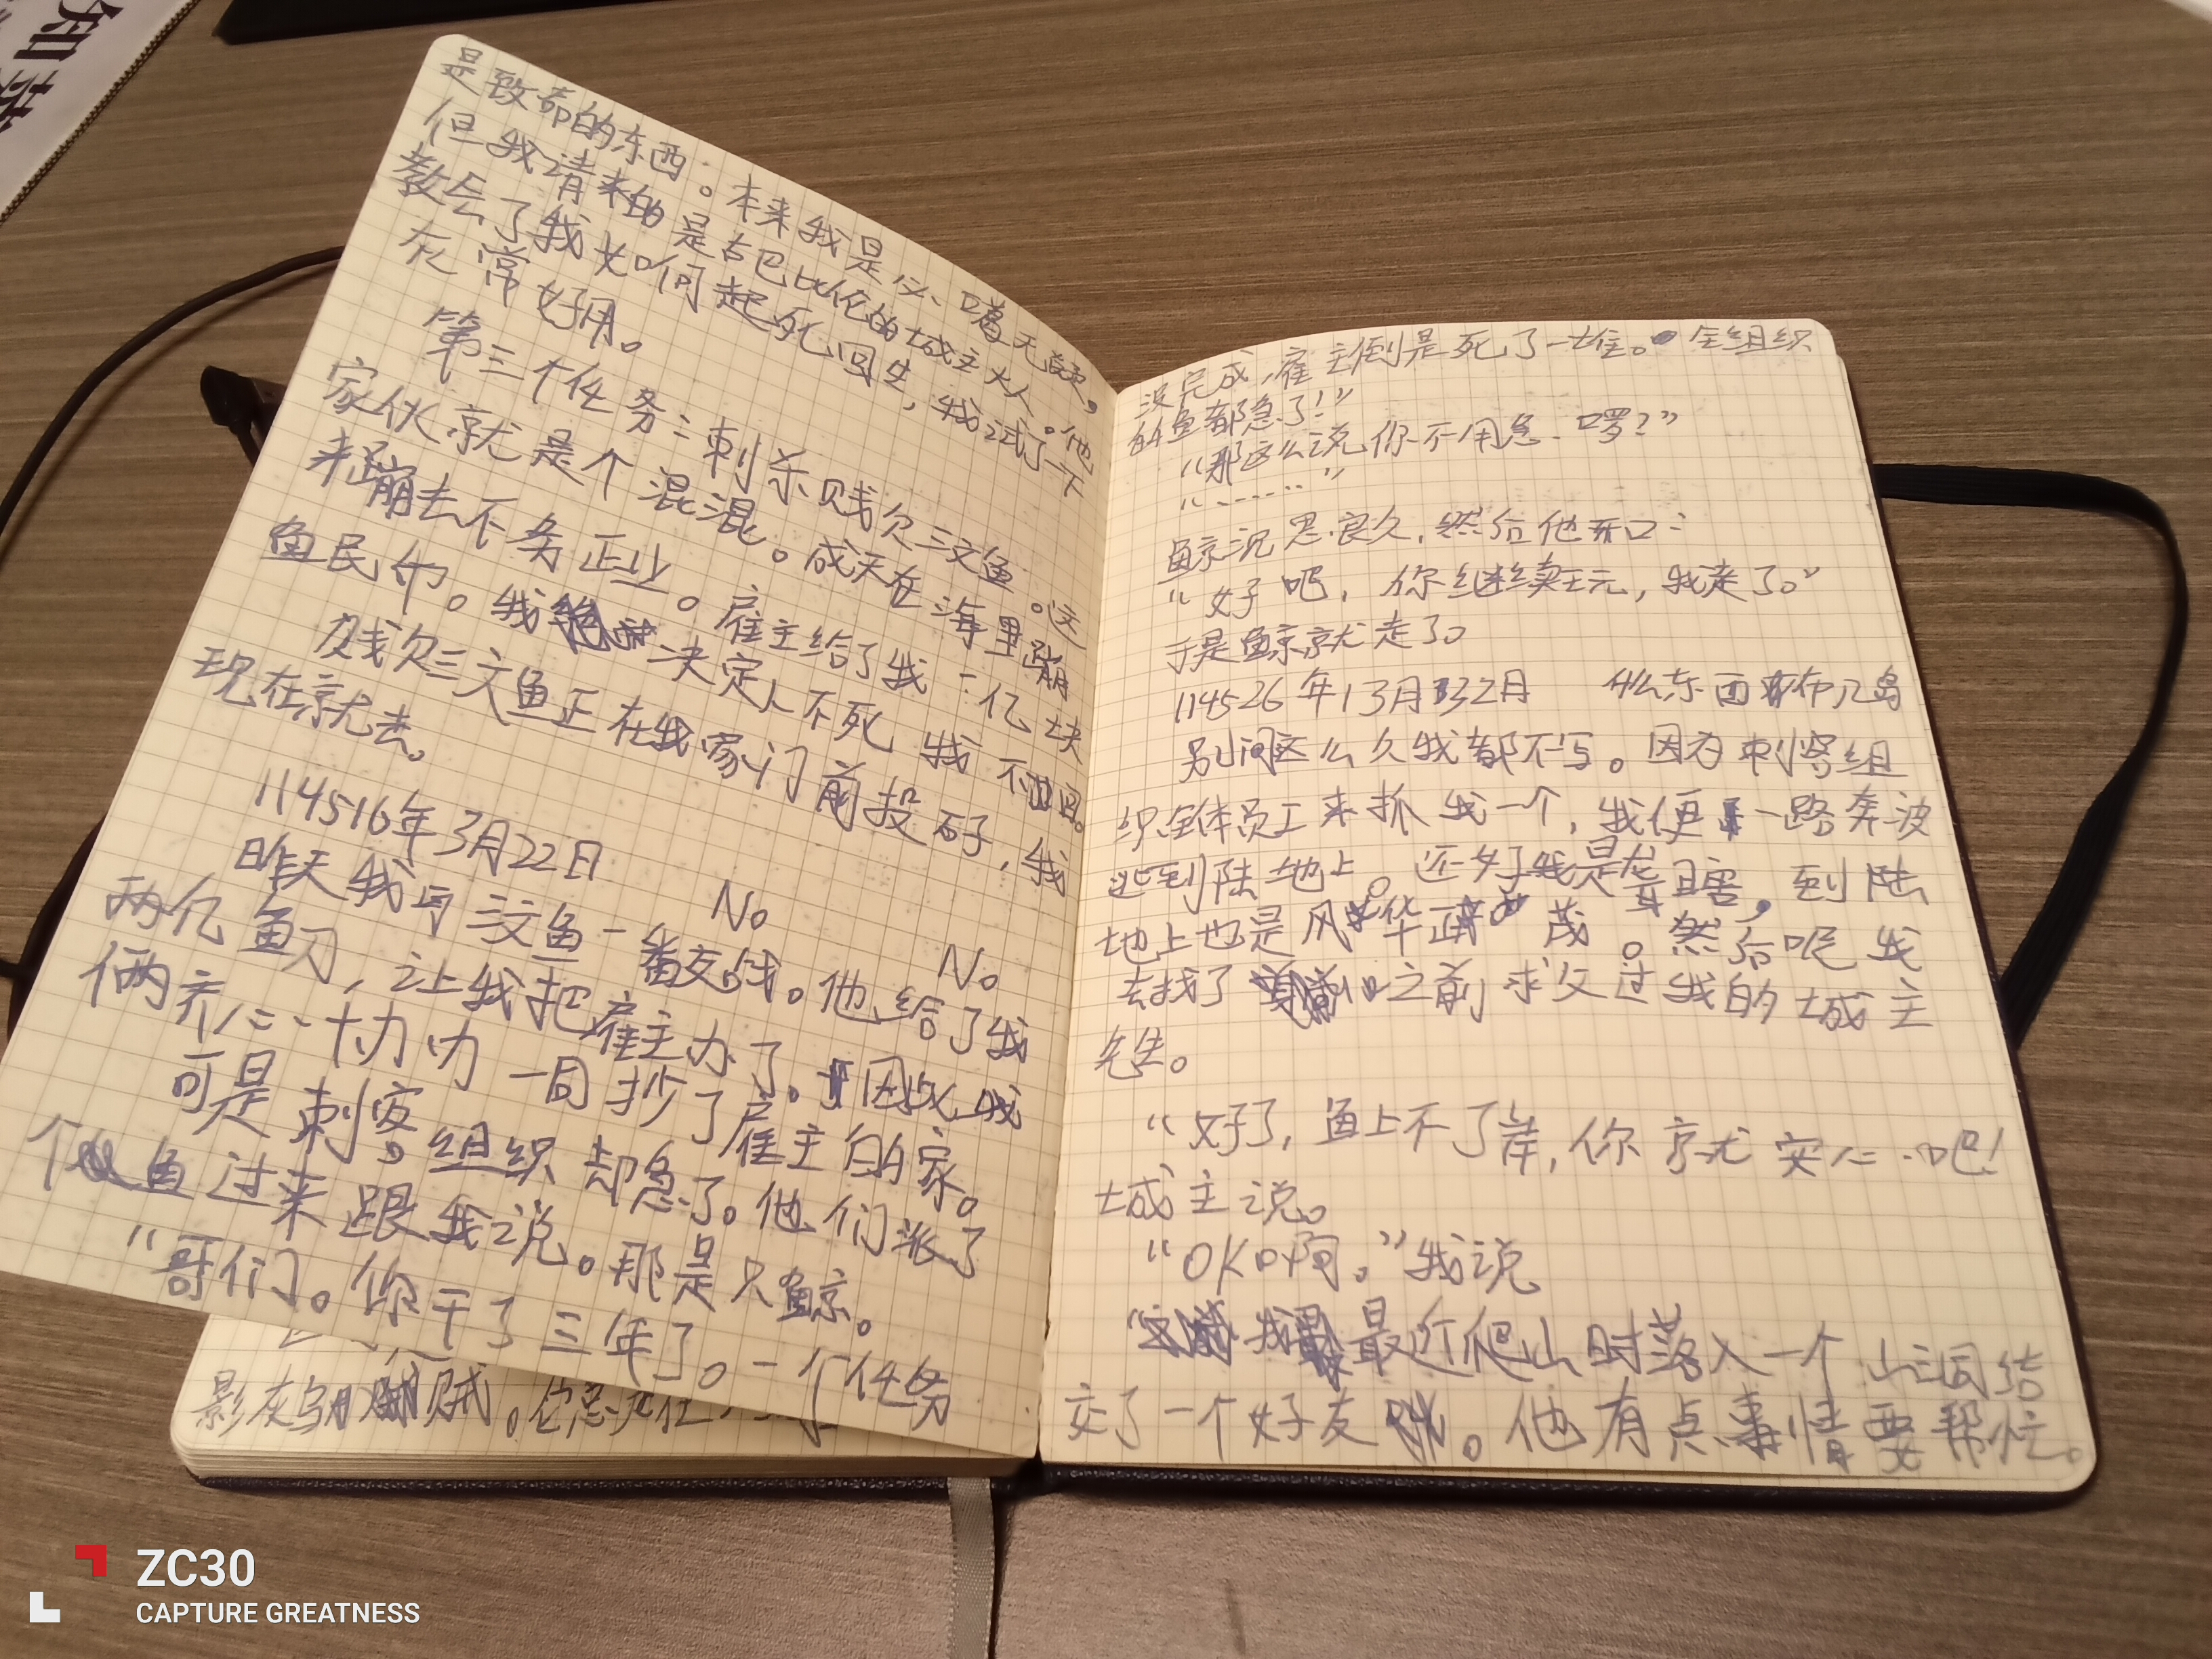 是致命的东西。本来我是必噶无疑，
但我请来的是古巴比伦的城主大人。他
教会了我如何起死回生，我试了一下
在常好用。
第三个任务：刺杀贱欠三文鱼。这
家伙就是个混混。成天在海里蹦
来蹦去不务正业。雇主给了我一亿块
鱼民币。我决定人不死我不回。
贱欠三文鱼正在我家门前投码，我
现在就去。
114516年3月22日
昨天我与三文鱼一番交战。他给了我
No
No
两亿鱼刀，让我把雇主办了。因此我
俩齐心协力一同抄了雇主的家。
可是刺客组织却急了。他们派了
个鱼过来跟我说。那是只鲸。
“哥们。你干了三年了。一个任务
影灰乌贼。
没完成，雇主倒是死了一堆。全组织
的鱼都急了！”
“那这么说你不用急啰？”
“……”
鲸沉思良久，然后他开口：
“好吧，你继续玩，我走了。”
于是鲸就走了。
114526年13月32日 什么东西布几岛
别问这么久我都不写。因为刺客组
织全体员工来抓我一个，我便一路奔波
逃到陆地上。还好我是龙虾，到陆
地上也是风华正茂。然后呢我
去找了之前求父过我的城主
先生。
“好了，鱼上不了岸，你就安心吧！
城主说。
“OK啊。”我说
最近爬山时落入一个山洞结
交了一个好友。他有点事情要帮忙。
ZC30
CAPTURE GREATNESS